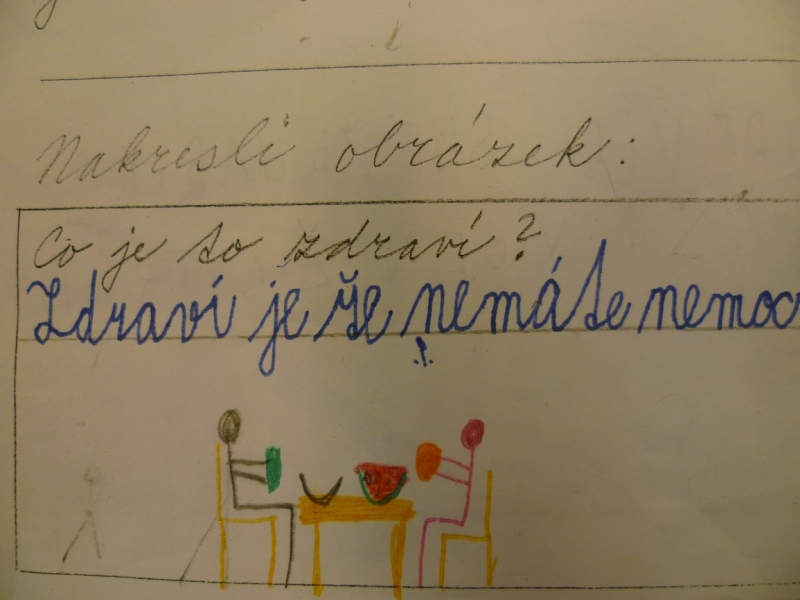 Nakresli obrázek:
Co je to zdraví?
Zdraví je že nemáte nemoc